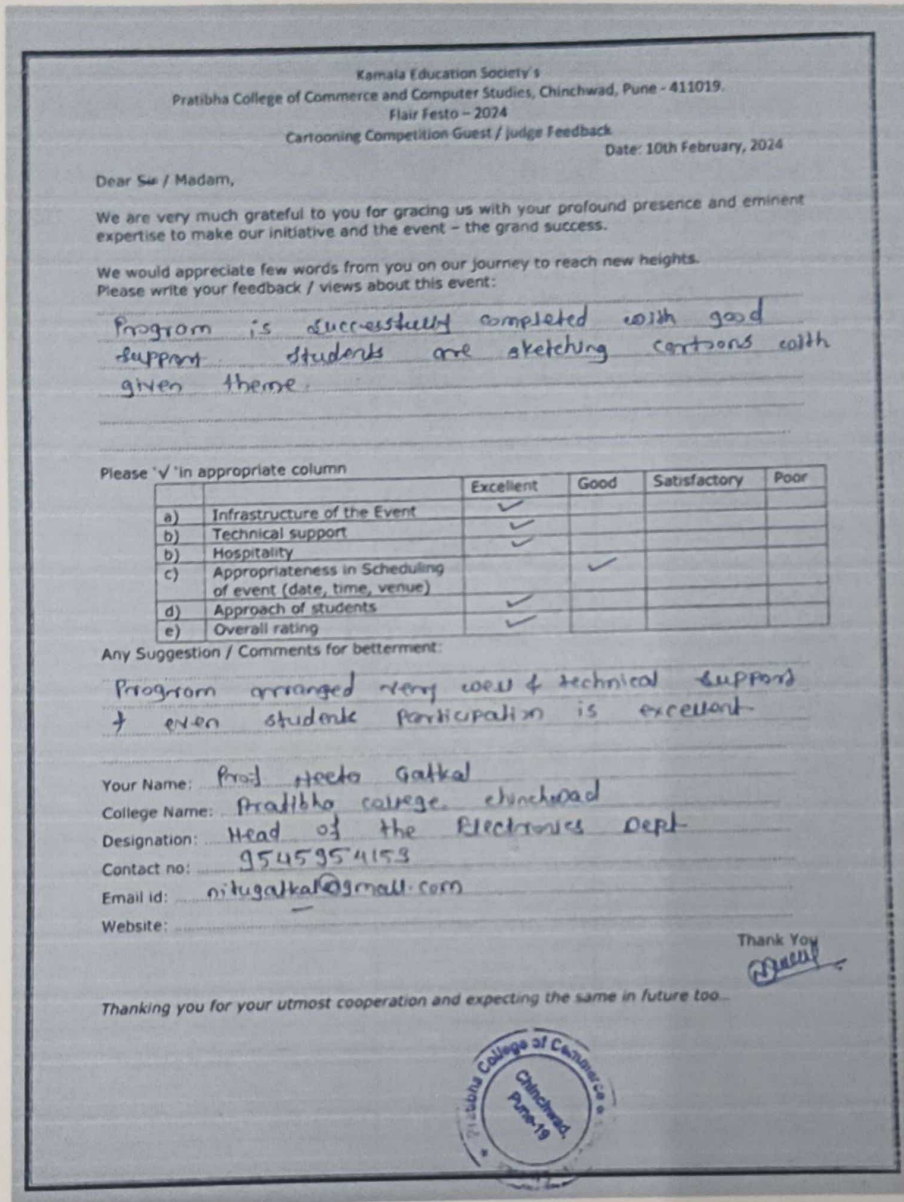 Kamala Education Society's
Pratibha College of Commerce and Computer Studies, Chinchwad, Pune - 411019.
Flair Festo – 2024
Cartooning Competition Guest / judge Feedback
Date: 10th February, 2024
Dear Sir / Madam,
We are very much grateful to you for gracing us with your profound presence and eminent
expertise to make our initiative and the event – the grand success.
We would appreciate few words from you on our journey to reach new heights.
Please write your feedback / views about this event:
Program is successfully completed with good
support students are sketching cartoons with
given theme.
Please '√ 'in appropriate column
Excellent Good Satisfactory Poor
a) Infrastructure of the Event ✓
b) Technical support ✓
b) Hospitality ✓
c) Appropriateness in Scheduling ✓
of event (date, time, venue)
d) Approach of students ✓
e) Overall rating ✓
Any Suggestion / Comments for betterment:
Program arranged very well & technical support
& even students participation is excellent
Your Name: Prof Gatkal
College Name: Pratibha college, chinchwad
Designation: Head of the Electronics Dept
Contact no: 9545954153
Email id: nitugatkal@gmail.com
Website:
Thank You
Thanking you for your utmost cooperation and expecting the same in future too...
Pratibha College of Commerce &
Chinchwad,
Pune-19